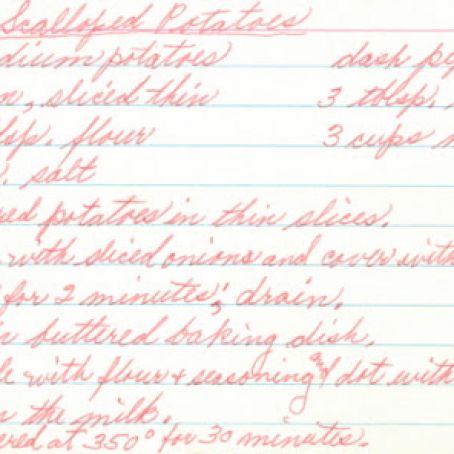 Scalloped Potatoes
dium potatoes dash pe
n, sliced thin 3 tblsp.
lsp. flour 3 cups
. salt
red potatoes in thin slices.
with sliced onions and cover with
for 2 minutes; drain.
n buttered baking dish.
le with flour + seasoning and dot with
n the milk.
ered at 350° for 30 minutes.